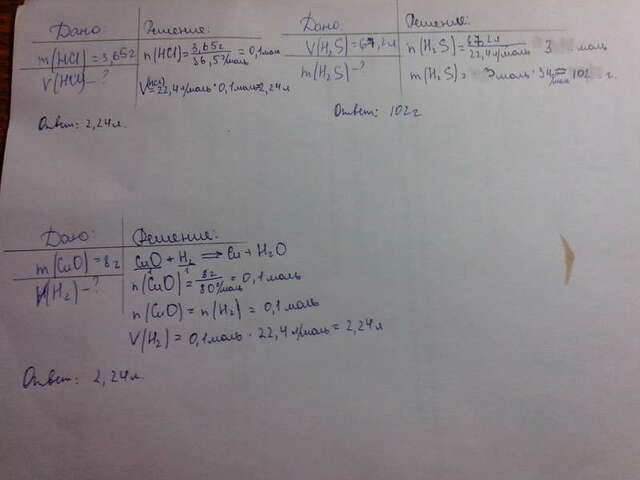 Дано:
m(HCl) = 3,65г
V(HCl) - ?
Решение:
n(HCl) = 3,65г / 36,5г/моль = 0,1моль
V(HCl) = 22,4л/моль · 0,1моль = 2,24л
Ответ: 2,24л.
Дано:
V(H₂S) = 67,2л
m(H₂S) - ?
Решение:
n(H₂S) = 67,2л / 22,4л/моль 3 моль
m(H₂S) = 3моль · 34г/моль = 102 г.
Ответ: 102г
Дано:
m(CuO) = 8г
V(H₂) - ?
Решение:
CuO + H₂ ⟹ Cu + H₂O
1 1
n(CuO) = 8г / 80г/моль = 0,1моль
n(CuO) = n(H₂) = 0,1моль
V(H₂) = 0,1моль · 22,4л/моль = 2,24л
Ответ: 2,24л.